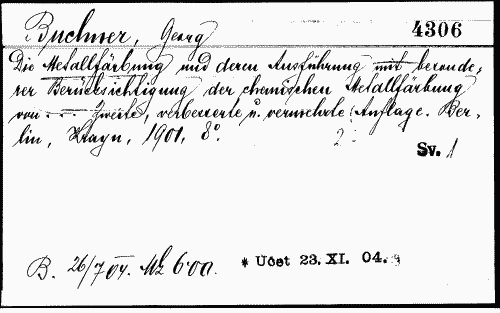 Buchner, Georg 4306
Die Metallfärbung und deren Ausführung mit besonde-
rer Berücksichtigung der chemischen Metallfärbung
von .... Zweite, verbesserte u. vermehrte Auflage. Ber-
lin, Krayn, 1901, 8°.
Sv. 1
B. 26/7 04. Mk 6.00. * Učet 23. XI. 04.